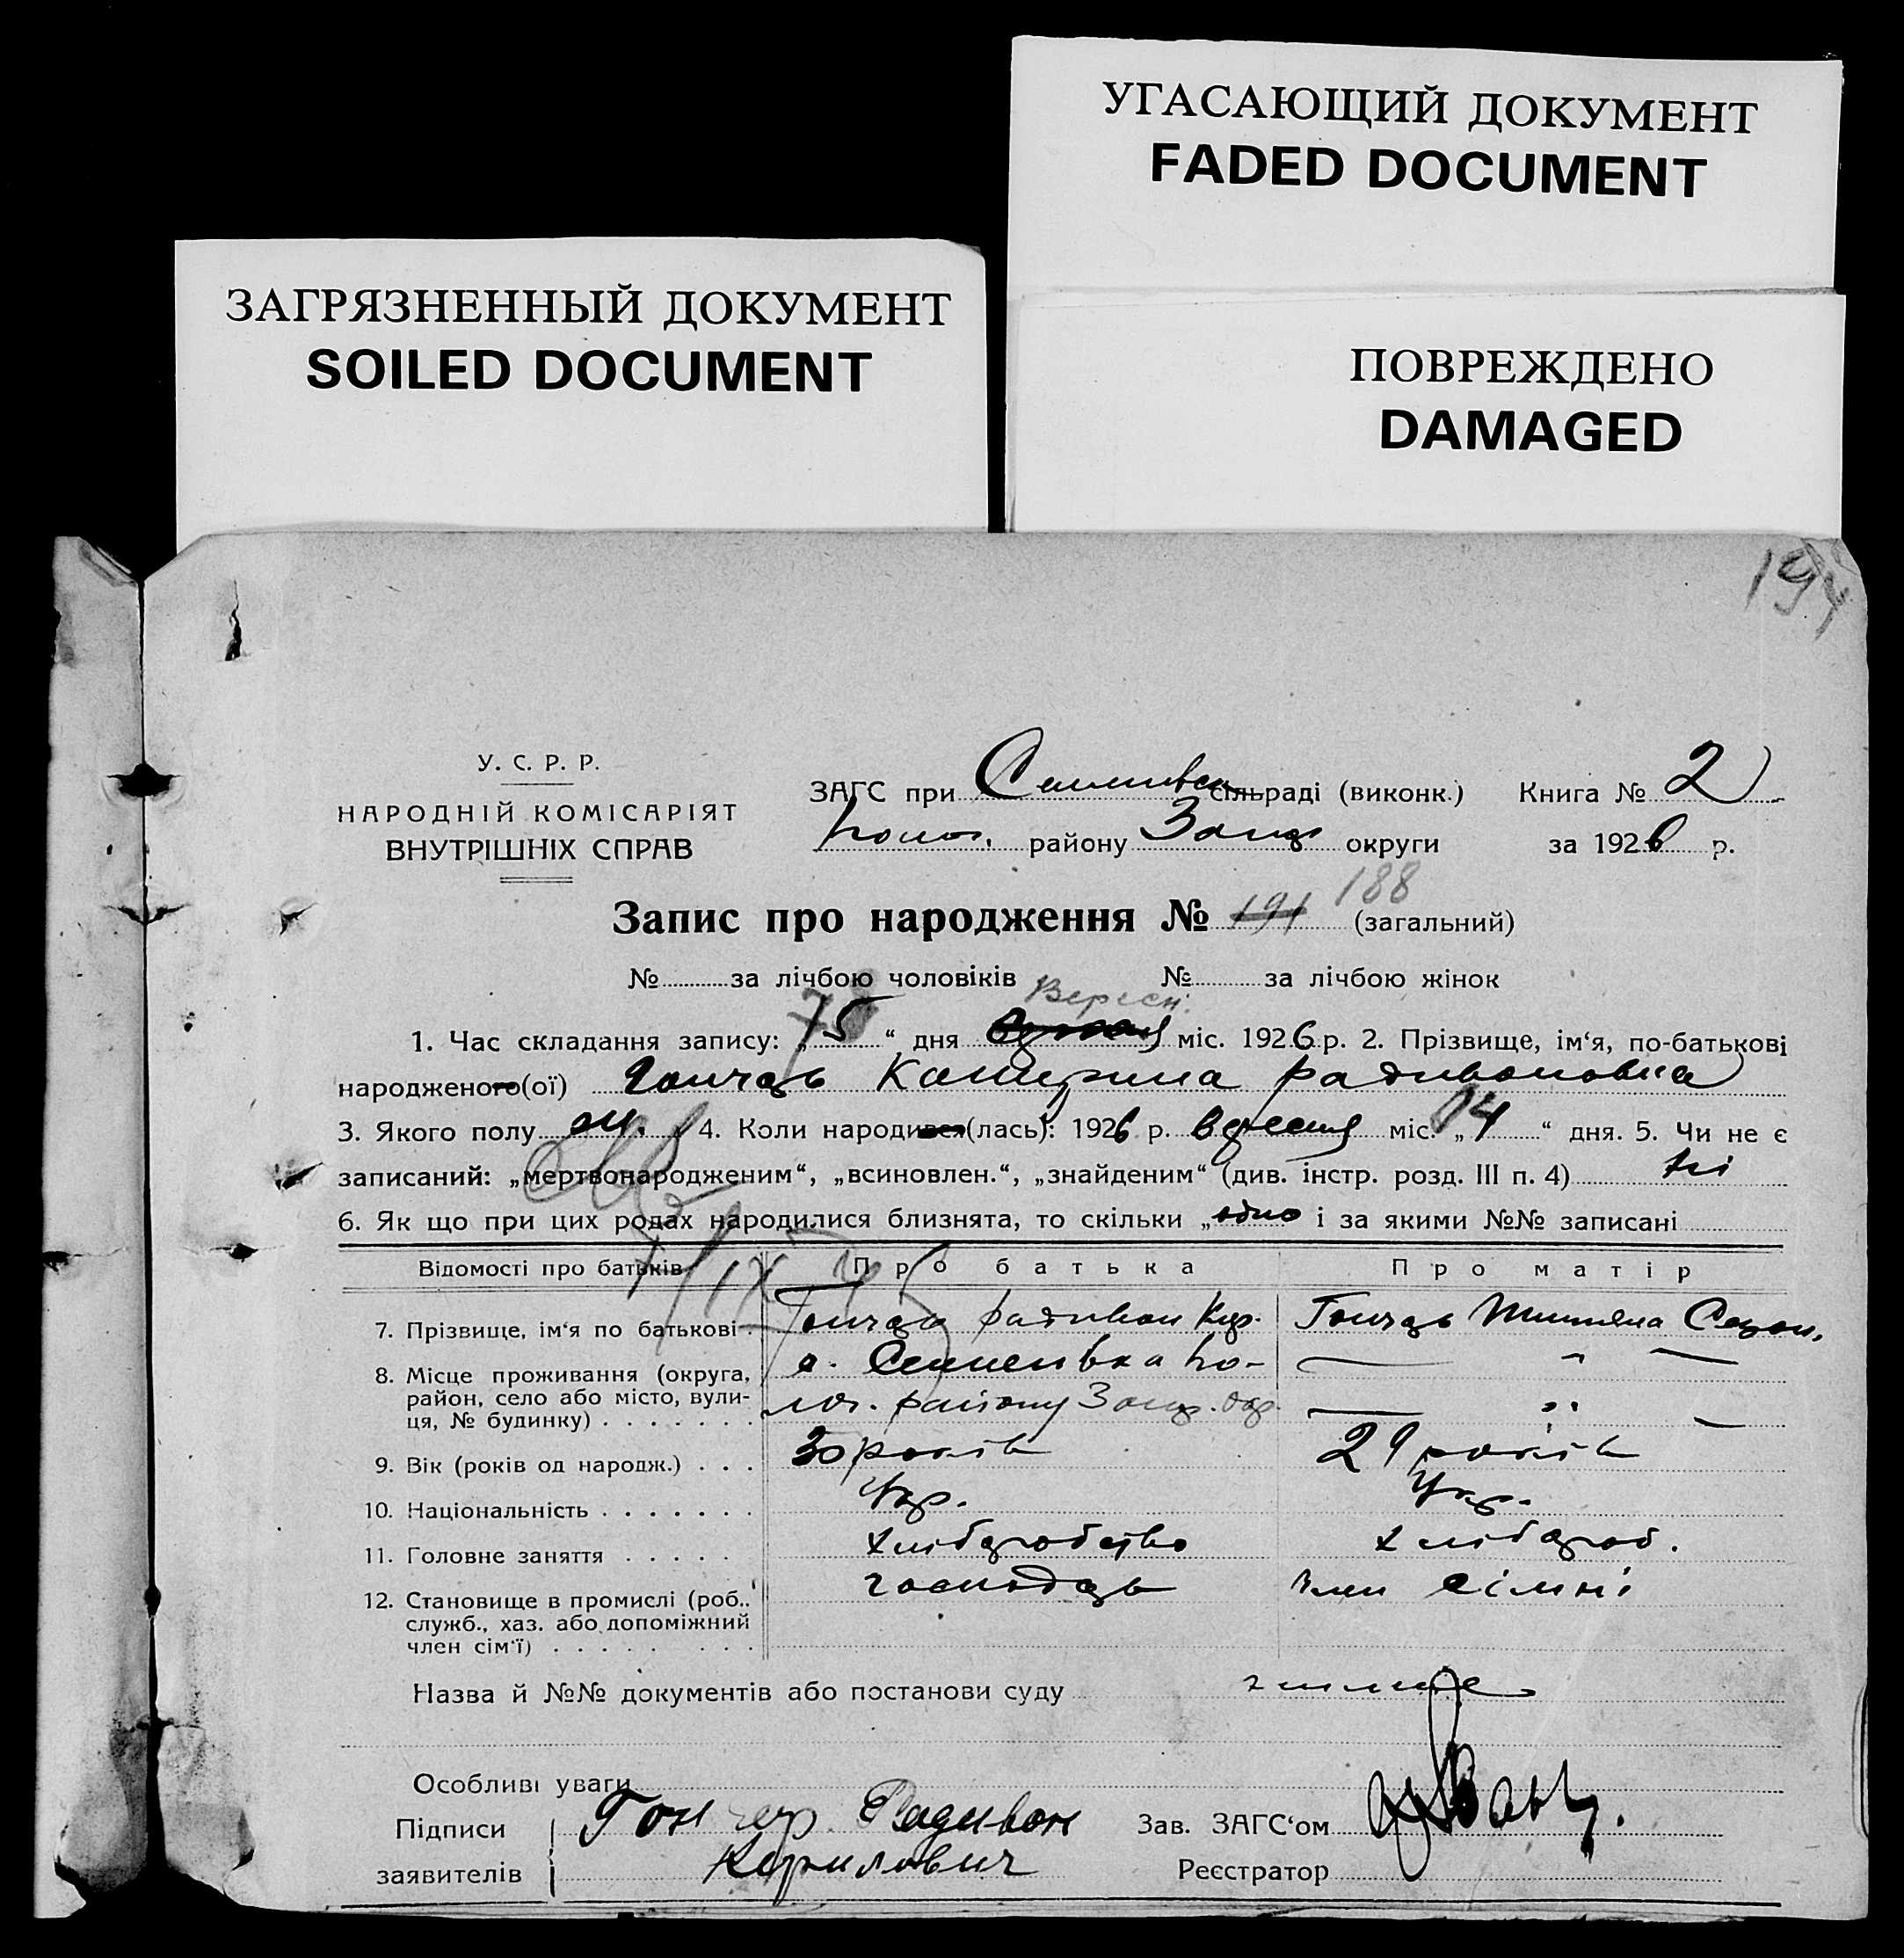 УГАСАЮЩИЙ ДОКУМЕНТ
FADED DOCUMENT
ЗАГРЯЗНЕННЫЙ ДОКУМЕНТ
SOILED DOCUMENT
ПОВРЕЖДЕНО
DAMAGED
194
У. С. Р. Р.
НАРОДНІЙ КОМІСАРІЯТ
ВНУТРІШНІХ СПРАВ
ЗАГС при сільраді (виконк.) Книга № 2
району Запор округи за 1926 р.
Запис про народження № 191 188 (загальний)
№ за лічбою чоловіків № за лічбою жінок
Вересн.
1. Час складання запису: „ 15 “ дня міс. 1926 р. 2. Прізвище, ім‘я, по-батькові
народженого(ої) Гончарь Катерина Радивоновна
3. Якого полу ж. 4. Коли народився(лась): 1926 р. вересня міс. „ 14 “ дня. 5. Чи не є
записаний: „мертвонародженим“, „всиновлен.“, „знайденим“ (див. інстр. розд. III п. 4) ні
6. Як що при цих родах народилися близнята, то скільки „одно і за якими №№ записані
Відомості про батьків Про батька Про матір
7. Прізвище, ім‘я по батькові Гончарь Радивон Кир. Гончарь
8. Місце проживання (округа, с. Семенівка По- „
район, село або місто, вули- лог. району Запор. окр. „
ця, № будинку)
9. Вік (років од народж.) 30 років 29 років
10. Національність Укр. Укр.
11. Головне заняття хліборобство хлібороб.
12. Становище в промислі (роб., господарь член сімні
служб., хаз. або допоміжний
член сім‘ї)
Назва й №№ документів або постанови суду
Особливі уваги
Підписи Гончар Радивон Зав. ЗАГС‘ом
заявителів Кирилович Реєстратор